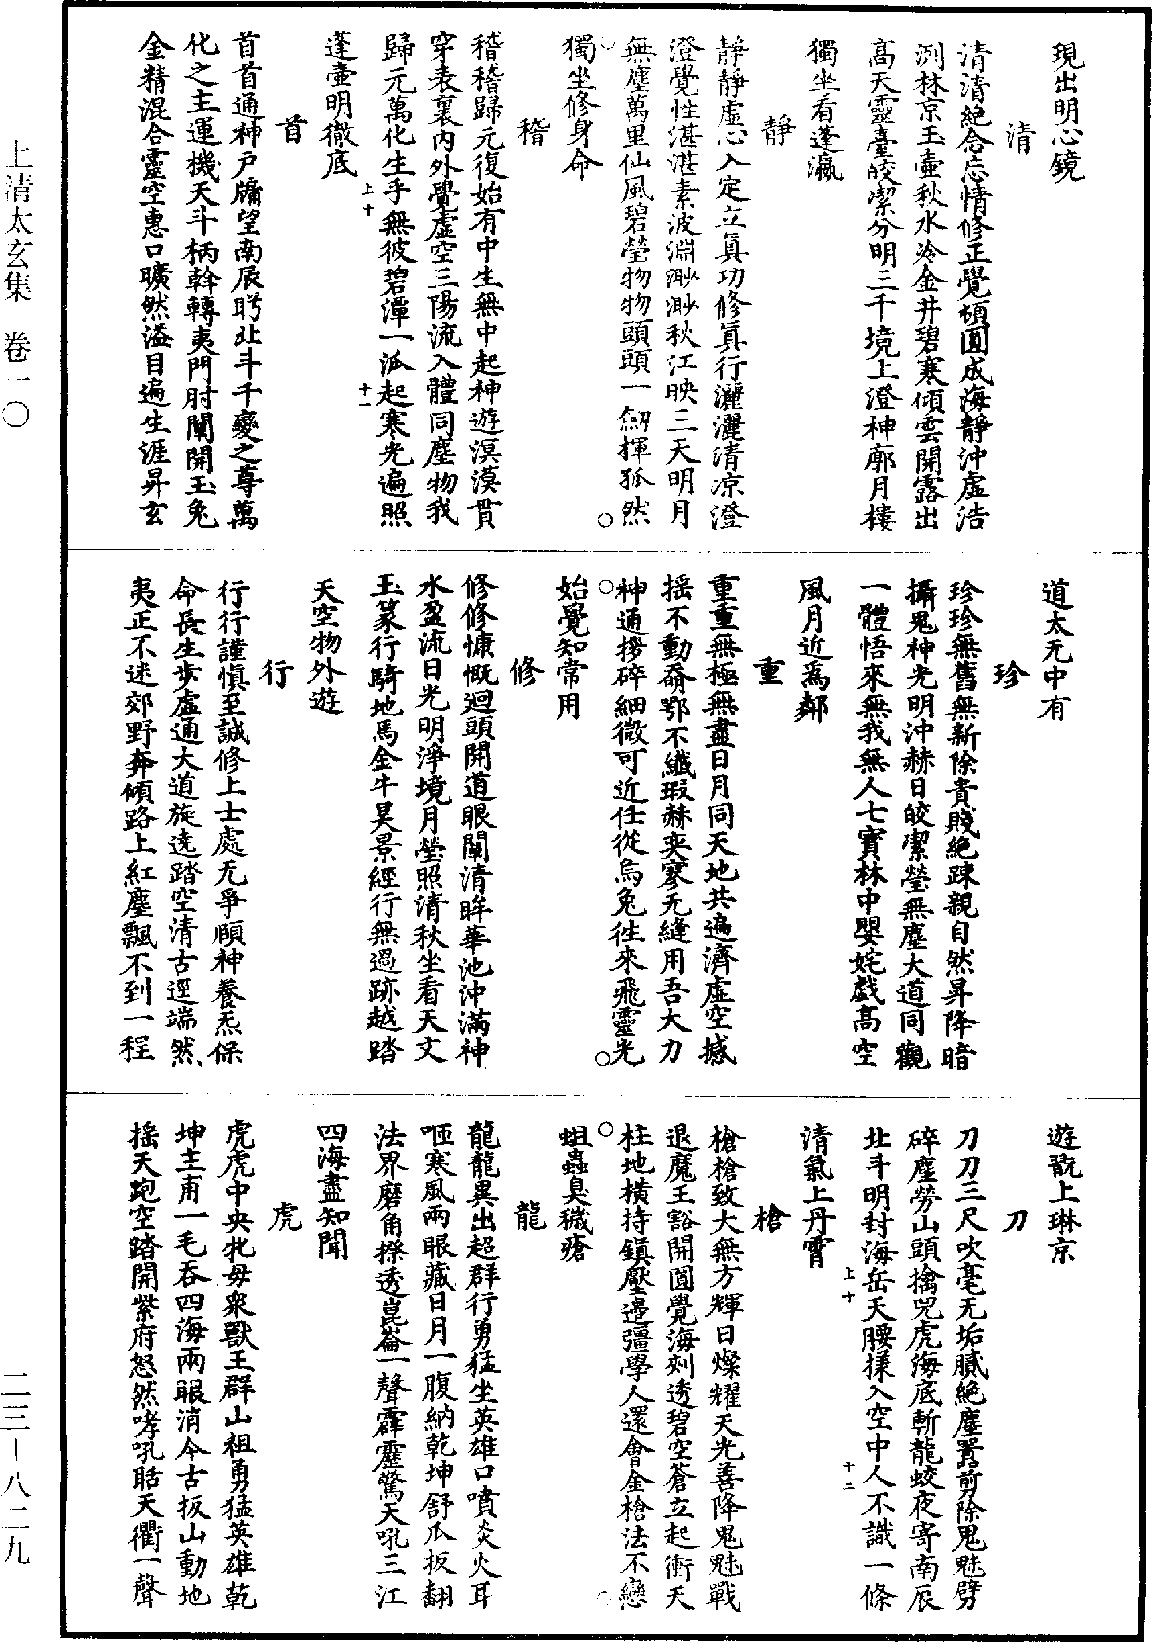 現出明心鏡
清
清清絶念忘情修正覺頓圓成海靜沖虛浩
渕林京玉壺秋水冷金井碧寒傾雲開露出
高天靈臺皎潔分明三千境上澄神廓月樓
獨坐看蓬瀛
靜
靜靜虛心入定立眞功修眞行灑灑清凉澄
澄覺性湛湛素波淵渺渺秋江映三天明月
無塵萬里仙風碧瑩物物頭頭一劒揮孤然
獨坐修身命
稽
稽稽歸元復始有中生無中起神遊溟漠貫
穿表裏内外覺虛空三陽流入體同塵物我
歸元萬化生乎無彼碧潭一泒起寒光遍照
蓬壺明徹底
首
首首通神戸牖望南辰聘北斗千變之尊萬
化之主運機天斗柄斡轉夷門肘闡開玉兔
金精混合靈空惠口曠然溢目遍生涯昇玄
上十
十一
道太无中有
珍
珍珍無舊無新除貴賤絶踈親自然昇降暗
攝鬼神光明沖赫日皎潔瑩無塵大道同觀
一體悟來無我無人七寶林中嬰姹戲高空
風月近爲鄰
重
重重無極無盡日月同天地共遍濟虛空撼
揺不動奣鄂不纖瑕赫奕寥无縫用吾大力
神通拶碎細微可近任從烏兔徃來飛靈光
始覺知常用
修
修修慷慨迴頭開道眼闡清眸華池沖滿神
水盈流日光明淨境月瑩照清秋坐看天文
玉篆行騎地馬金牛昊景經行無過跡越踏
天空物外遊
行
行行謹愼至誠修上士處无爭頤神養炁保
命長生步虛通大道旋遶踏空清古逕端然
夷正不迷郊野奔傾路上紅塵飄不到一程
遊翫上琳京
刀
刀刀三尺吹毫无垢膩絶塵嚚剪除鬼魅劈
碎塵勞山頭擒兕虎海底斬龍蛟夜寄南辰
北斗明封海岳天腰揉入空中人不識一條
清氣上丹霄
上十
十二
槍
槍槍致大無方輝日燦耀天光善降鬼魅戰
退魔王豁開圓覺海剡透碧空蒼立起衝天
柱地橫持鎭壓邉彊學人還會金槍法不戀
蛆蟲臭穢瘡
龍
龍龍異出超群行勇猛坐英雄口噴炎火耳
咂寒風兩眼藏日月一腹納乾坤舒瓜扳翻
法界磨角擦透崑崙一聲霹靂驚天吼三江
四海盡知聞
虎
虎虎中央牝母衆獸王群山祖勇猛英雄乾
坤主甫一毛吞四海兩眼消今古扳山動地
搖天跑空踏開紫府怒然哮吼聒天衢一聲
上清太玄集　卷一〇
二三－八二九